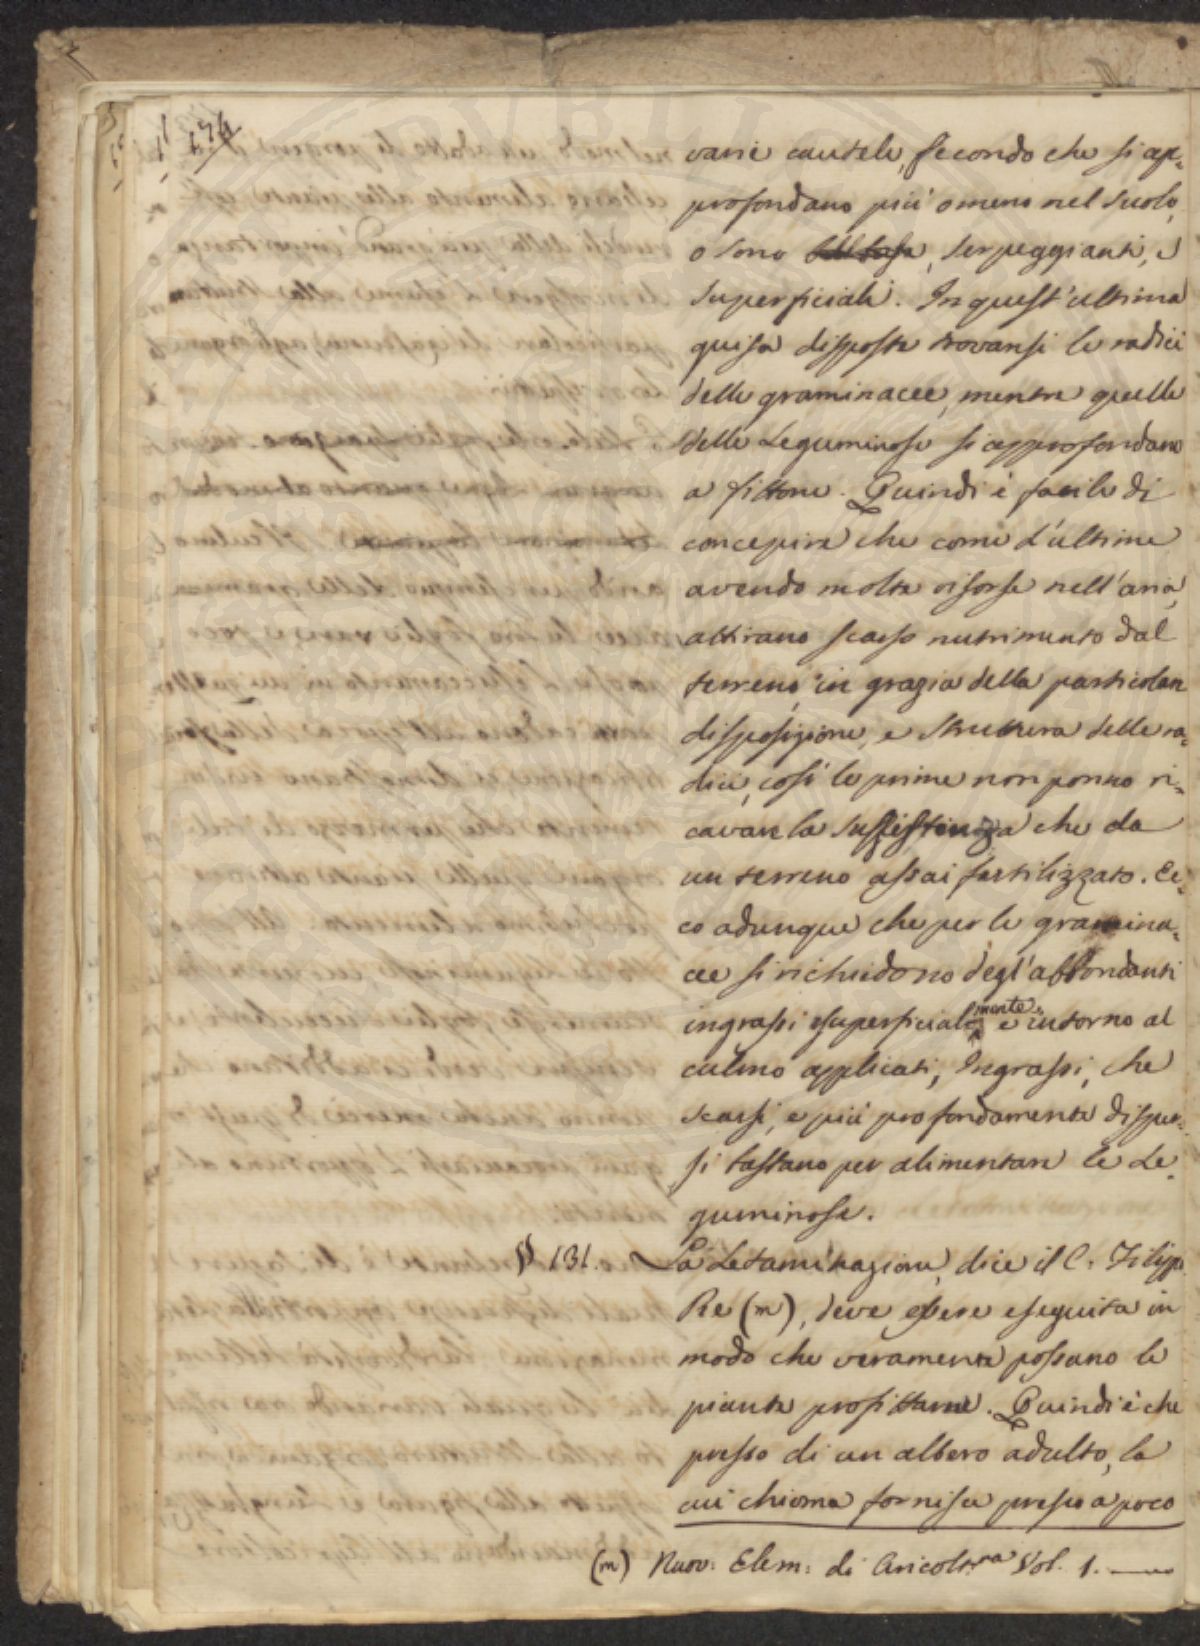 174
varie cautele, secondo che si ap=
profondano più o meno nel suolo,
o sono serpeggianti, e
superficiali. In quest'ultima
guisa disposte trovansi le radici
delle graminacee, mentre quelle
delle Leguminose si approfondano
a fittone. Quindi è facile di
concepire che come l'ultime
avendo molte risorse nell'aria,
attirano scarso nutrimento dal
terreno, in grazia della particolare
disposizione, e struttura delle ra=
dici, così le prime non ponno ri=
cavare la sussistenza che da
un terreno assai fertilizzato. Ec=
co adunque che per le gramina=
cee si richiedono degl'abbondanti
ingrassi superficialmente e intorno al
culmo applicati, Ingrassi, che
scarsi, e più profondamente disper=
si bastano per alimentare le Le=
guminose.
§ 131. La Letaminazione, dice il C. Filipp
Re (m), deve essere eseguita in
modo che veramente possano le
piante profittarne. Quindi è che
presso di un albero adulto, la
cui chioma fornisce presso a poco
(m) Nuov: Elem: di Aricolt.ra Vol. 1.